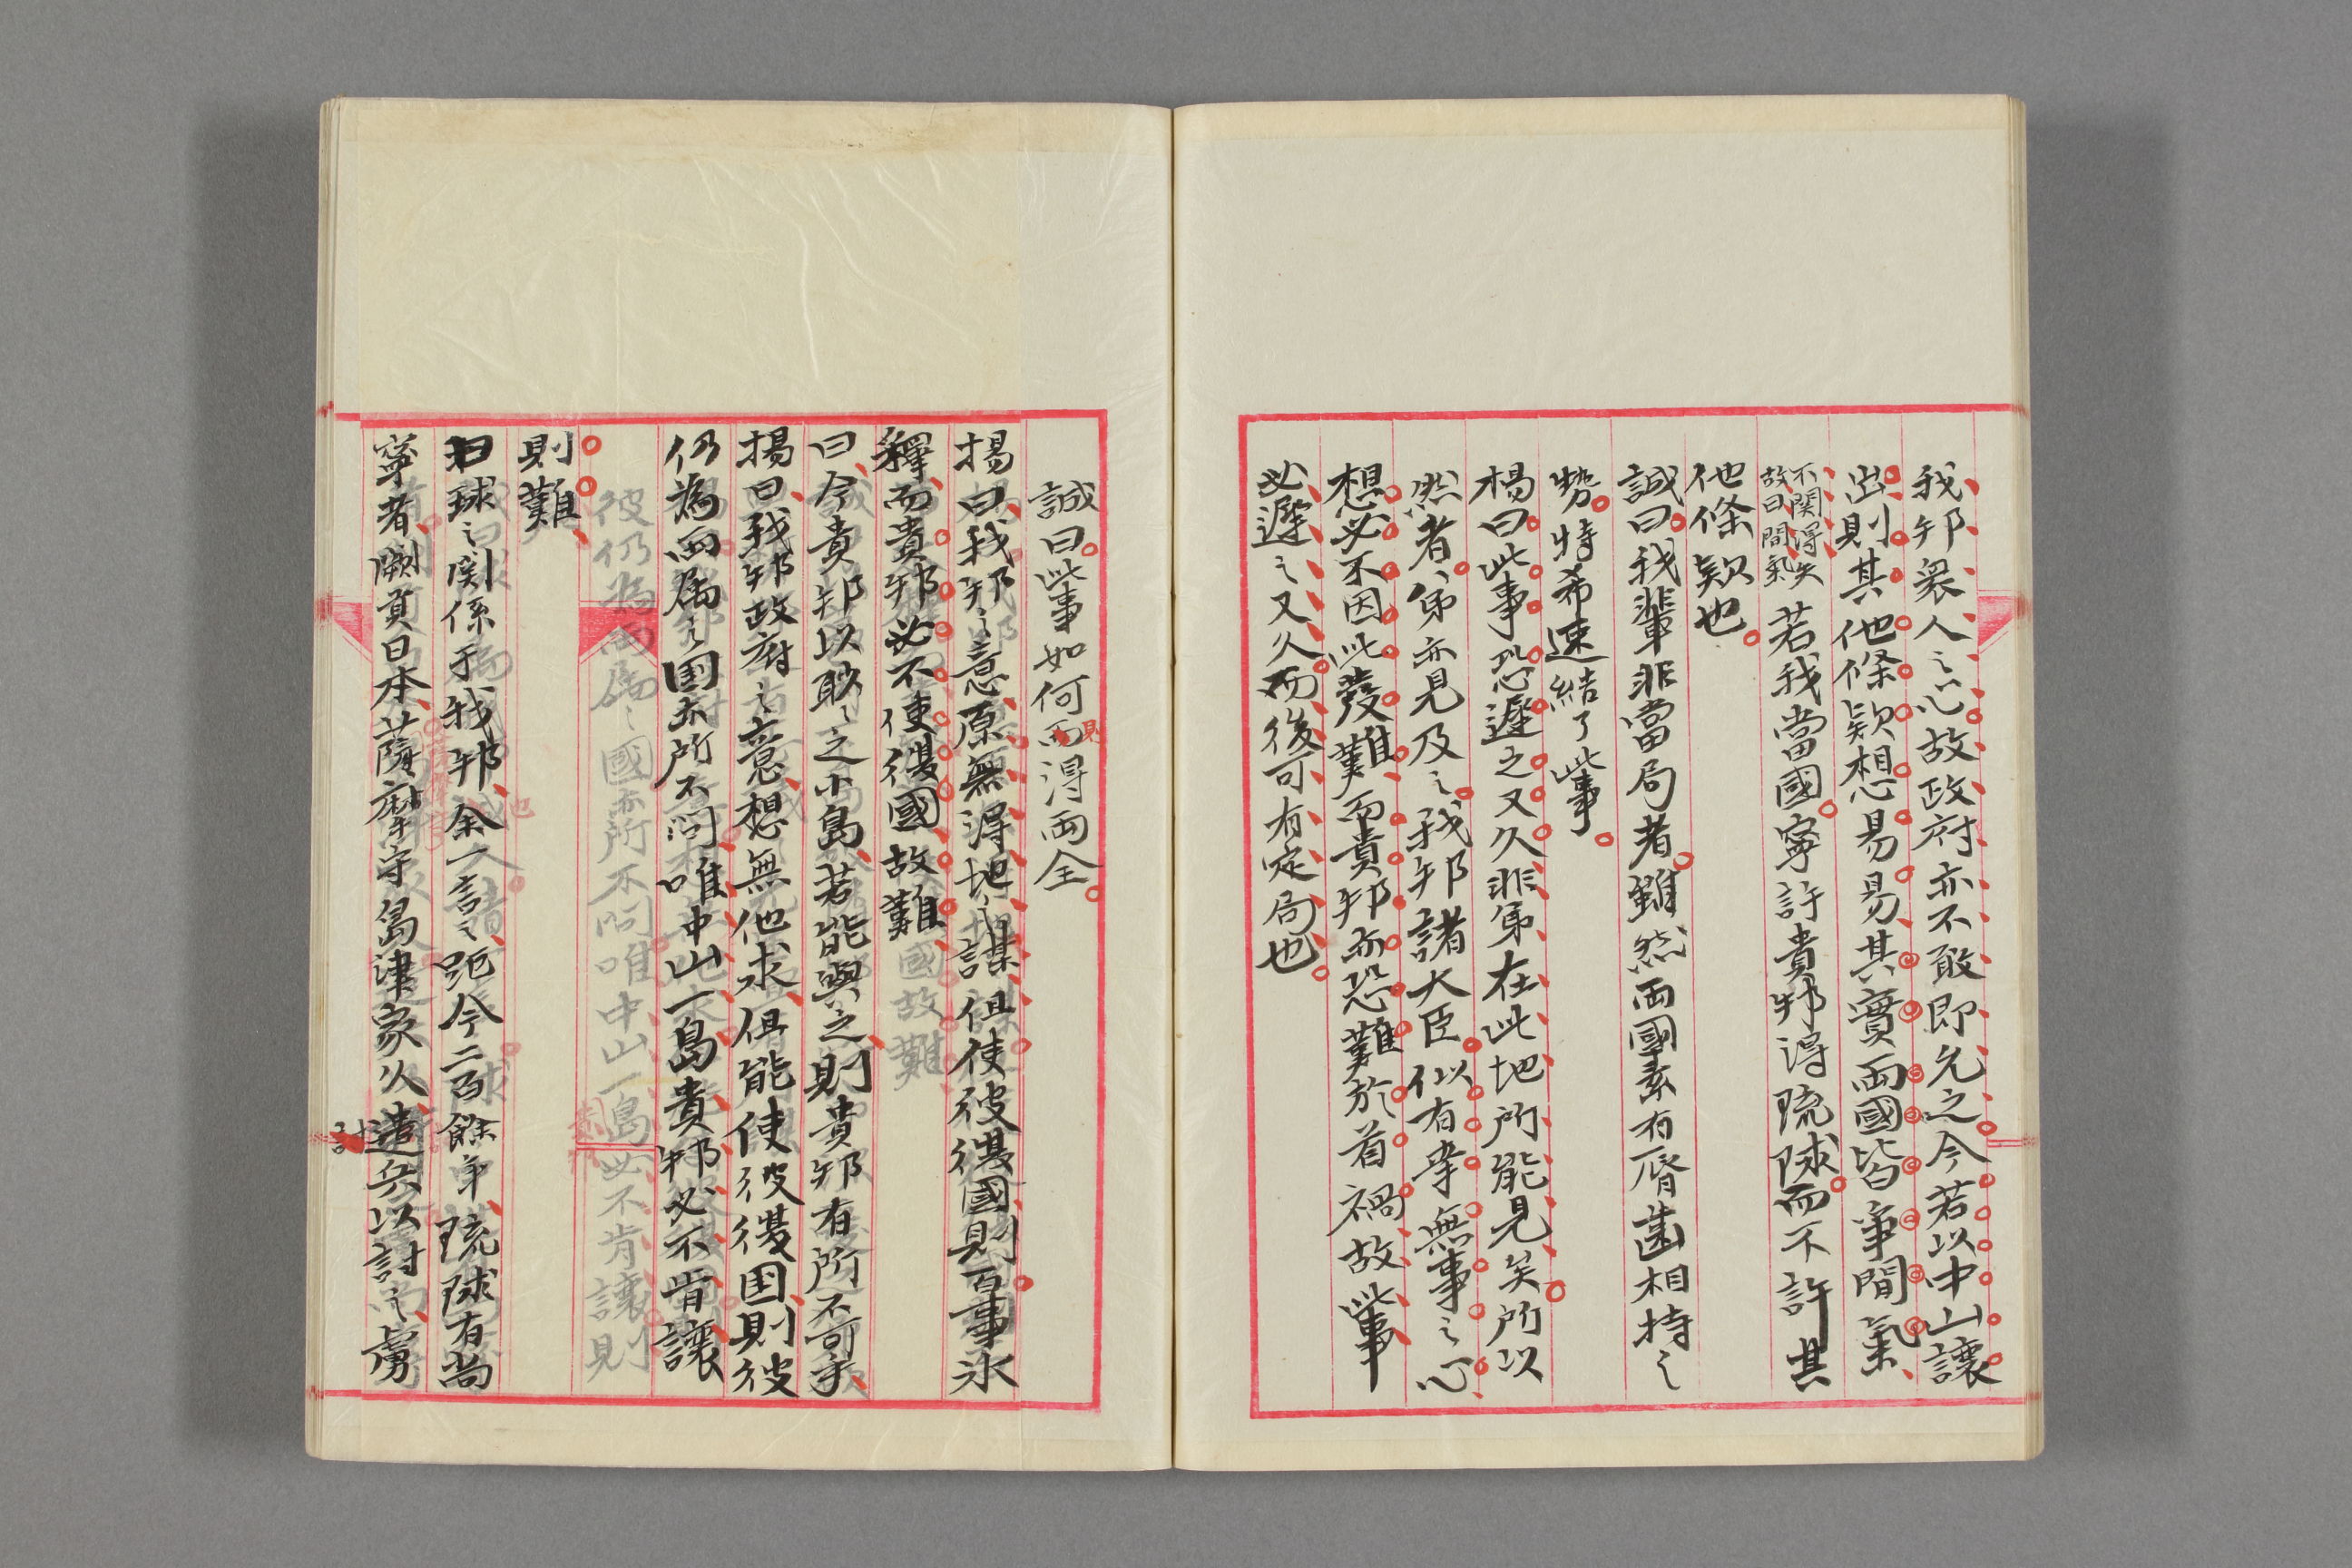 我邦衆人之心故政府亦不敢即允之今若以中山讓
出則其他條欵想易易其實兩國皆爭閒氣
不關得失
故曰閒氣
若我當國寧許貴邦得琉球而不許其
他條欵也
誠曰我輩非當局者雖然兩國素有脣齒相持之
勢特希速結了此事
楊曰此事恐遲之又久非弟在此地所能見矣所以
然者弟亦見及之我邦諸大臣似有幸無事之心
想必不因此發難而貴邦亦恐難於首禍故此事
必遲之又久而後可有定局也
誠曰此事如何而得兩全
見
楊曰我邦之意原無得地之謀但使彼復國則百事氷
釋而貴邦必不使復國故難
曰今貴邦以眇之之小島若能與之則貴邦有所不可乎
楊曰我邦政府之意想無他求但能使彼復国則彼
仍為兩屬之国亦所不问唯中山一島貴邦必不肯讓
彼仍為兩屬之國亦所不问唯中山一島必不肯讓則
則難
曰球之関係于我邦余一言之距今二百餘年琉球有尚
寧者闕貢日本薩摩守島津家久遣兵以討之虜
討